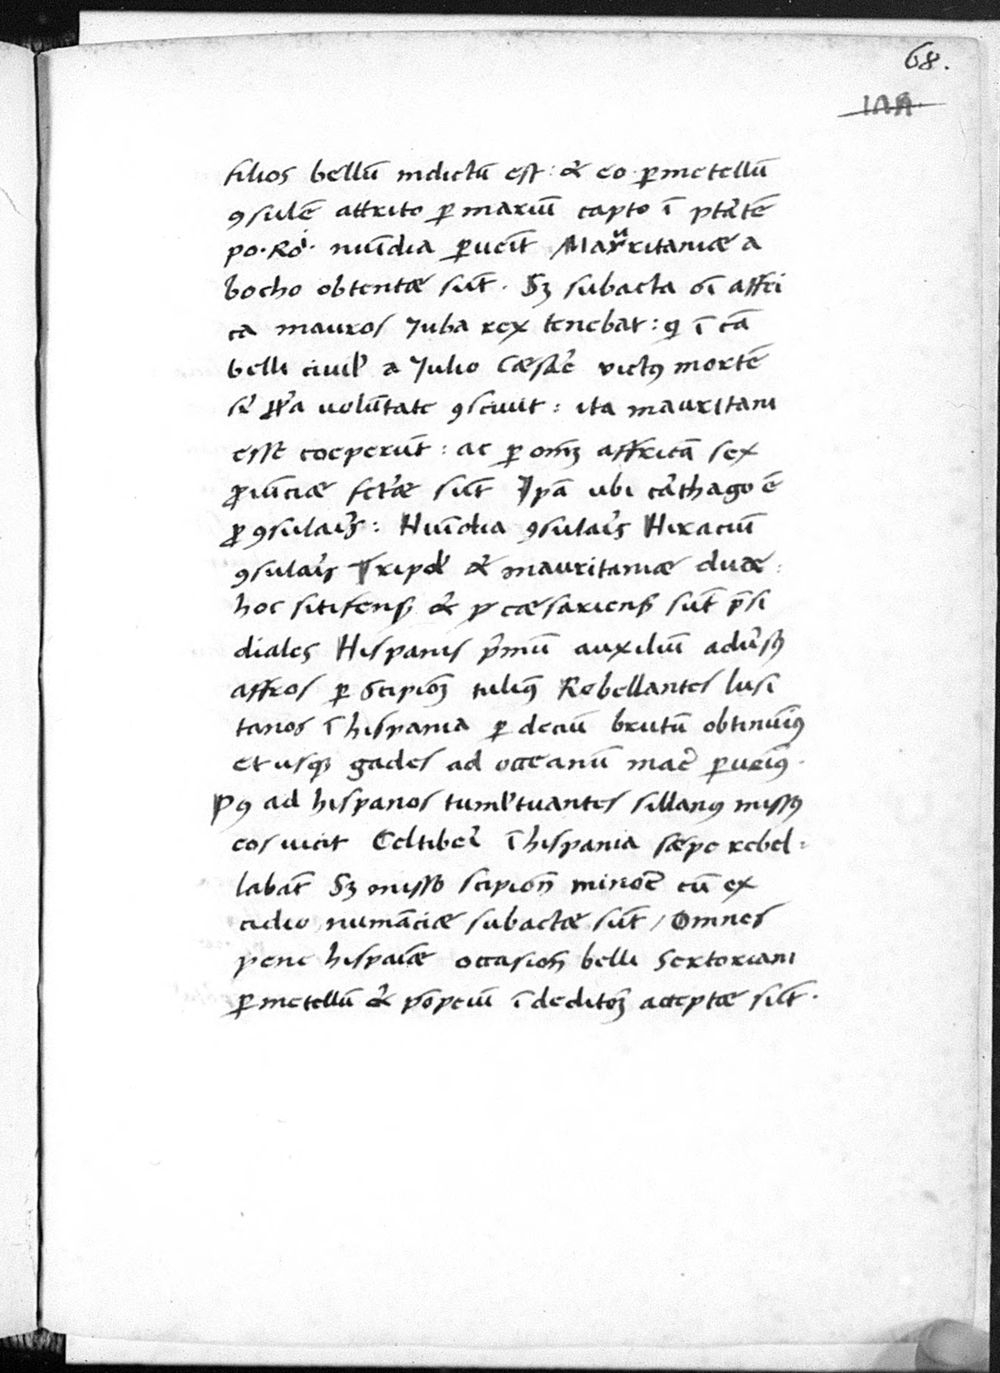 68.
filios bellū indictū est: & eo ꝑ metellū
ꝯsulē attrito ꝑ mariū capto ī ptātē
po. Ro. nuīdia ꝑuēit Mauritaniæ a
bocho obtentæ sūt. Sꝫ subacta oī affri
ca mauros Juba rex tenebat: qͥ ī cā
belli ciuil' a Julio Cæsāē victꝯ mortē
sī ꝓp'a volūtate ꝯsciuit: ita mauritani
esse coeperūt: ac ꝑ omē affricā sex
ꝓuīciæ fc̄æ sūt Ipā ubi cārthago ē
ꝓꝯsulaīs: Nuīdia ꝯsulaīs Biraciū
ꝯsulaīs Tripol' & mauritaniæ duæ:
hoc sitifensꝭ & p cæsariensꝭ sūt p̄si
diales Hispanis p̄mū auxiliū aduīsꝯ
affros ꝑ Scipioēꝫ tulimꝯ Rebellantes lusi
tanos ī hispania ꝑ deciū brutū obtinuīꝯ
et usqꝫ gades ad occeanū maē ꝑueīꝯ.
Pꝯ ad hispanos tuml'tuantes sillanꝯ missꝯ
eos uicit Celtiberī ī hispania sæpe rebel=
labāt Sꝫ misso scipion̄ minoē cū ex
cidio numāciæ subactæ sūt / Omnes
pene hispaīæ occasion̄ belli Sertoriani
ꝑ metellū & pōpeiū ī deditōꝫ acceptæ sūt.